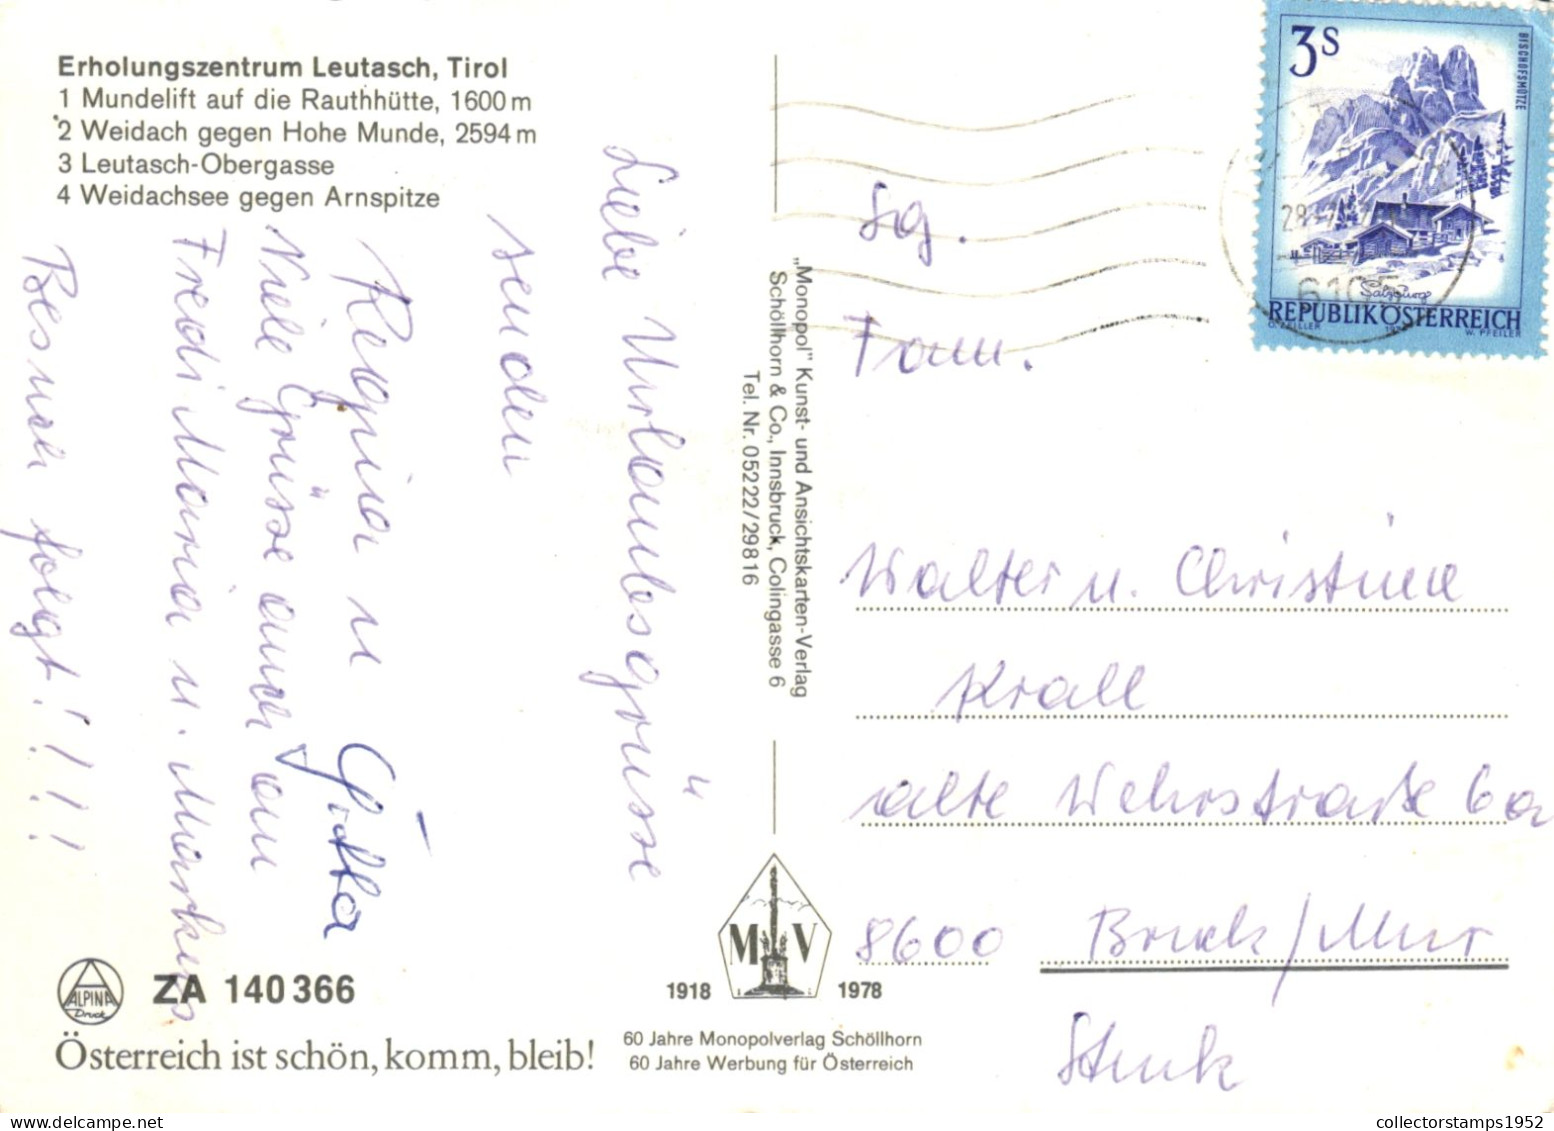 Erholungszentrum Leutasch, Tirol
1 Mundelift auf die Rauthhütte, 1600 m
2 Weidach gegen Hohe Munde, 2594 m
3 Leutasch-Obergasse
4 Weidachsee gegen Arnspitze
Liebe Urlaubsgrüsse
senden
Regina u Gitta
Viele Grüsse auch an
Fredi Maria u. Markus
Besuch folgt!!!!
„Monopol" Kunst- und Ansichtskarten-Verlag
Schöllhorn & Co., Innsbruck, Colingasse 6
Tel. Nr. 05222/29816
3 S
BISCHOFSMÜTZE
Salzburg
REPUBLIK ÖSTERREICH
O. ZEILLER
W. PFEILER
Fg.
Fam.
Walter u. Christine
Krall
alte Wehrstraße 6a
8600 Bruck/Mur
Stmk
M V
1918 1978
60 Jahre Monopolverlag Schöllhorn
60 Jahre Werbung für Österreich
ALPINA
Druck
ZA 140 366
Österreich ist schön, komm, bleib!
collectorstamps1952